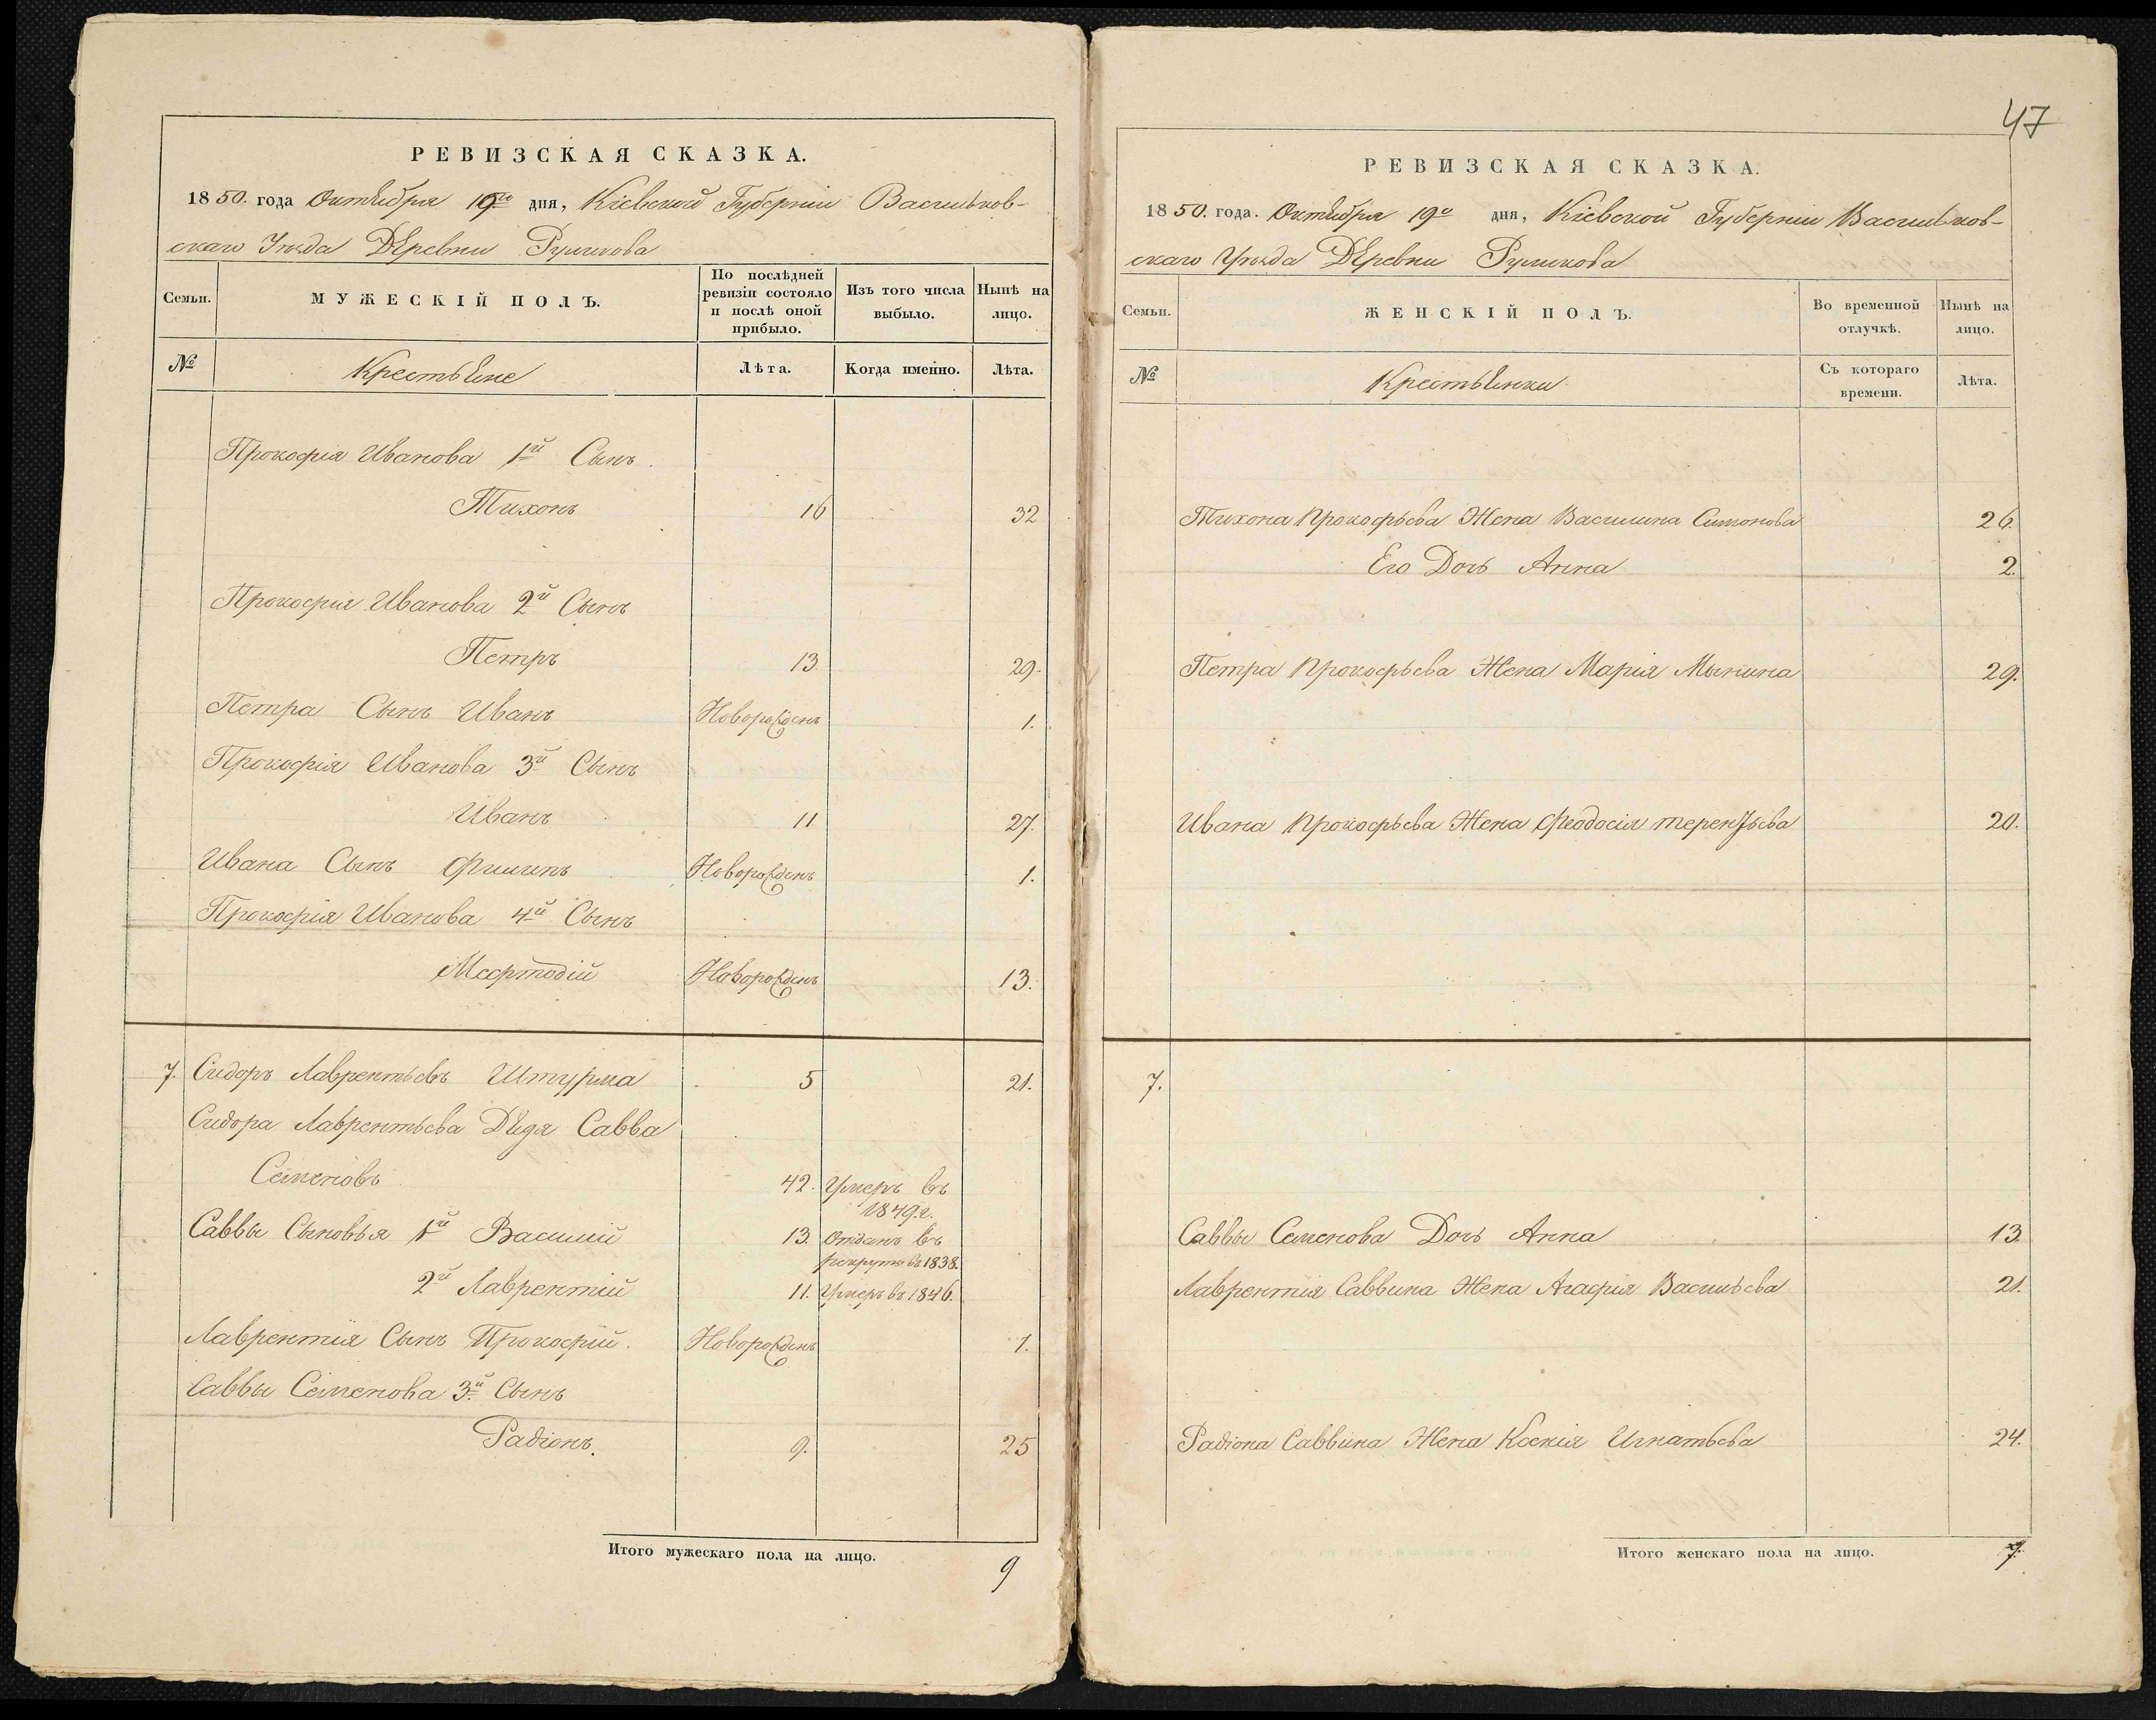 РЕВИЗСКАЯ СКАЗКА.
1850. года Октября 19го дня, Кіевской Губерніи Васильков-
скаго Уѣзда Деревни
Семьи.
МУЖЕСКІЙ ПОЛЪ.
По послѣдней ревизіи состояло и послѣ оной прибыло.
Изъ того числа выбыло.
Нынѣ на лицо.
№
Крестьяне
Лѣта.
Когда именно.
Лѣта.
Прокофія Иванова 1й Сынъ.
Тихонъ 16 32
Прокофія Иванова 2й Сынъ
Петръ 13 29.
Петра Сынъ Иванъ Новорожденъ 1.
Прокофія Иванова 3й Сынъ
Иванъ 11 27.
Ивана Сынъ Филипъ Новорожденъ 1.
Прокофія Иванова 4й Сынъ
Мефтодій Новорожденъ 13.
7. Сидоръ Лаврентьевъ Штурма 5 21.
Сидора Лаврентьева Дядя Савва
Семеновъ 42. Умеръ въ
1849г.
Саввы Сыновья 1й Василий 13. Отданъ въ
рекруты въ 1838.
2й Лаврентий 11. Умеръ въ 1846.
Лаврентия Сынъ Прокофий. Новорожденъ 1.
Саввы Семенова 3й Сынъ
Радіонъ. 9. 25
Итого мужескаго пола на лицо. 9
47
РЕВИЗСКАЯ СКАЗКА.
1850. года. Октября 19о дня, Кіевской Губерніи Васильков-
скаго Уѣзда Деревни
Семьи.
ЖЕНСКІЙ ПОЛЪ.
Во временной отлучкѣ.
Нынѣ на лицо.
№
Крестьянки
Съ котораго времени.
Лѣта.
Тихона Прокофьева Жена Василина Симонова 26.
Его Дочь Анна 2.
Петра Прокофьева Жена Марія 29.
Ивана Прокофьева Жена Феодосія Терентьева 20.
7.
Саввы Семенова Дочь Анна 13
Лаврентія Саввина Жена Агафія Васильева 21.
Радіона Саввина Жена Ксенія Игнатьева 24.
Итого женскаго пола на лицо. 7.